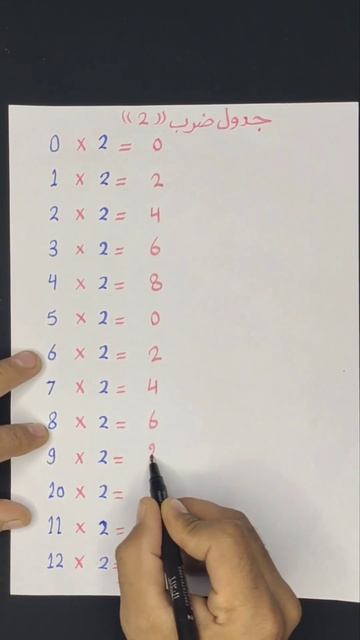 جدول ضرب ((2))
0 × 2 = 0
1 × 2 = 2
2 × 2 = 4
3 × 2 = 6
4 × 2 = 8
5 × 2 = 0
6 × 2 = 2
7 × 2 = 4
8 × 2 = 6
9 × 2 =
10 × 2 =
11 × 2 =
12 × 2 =